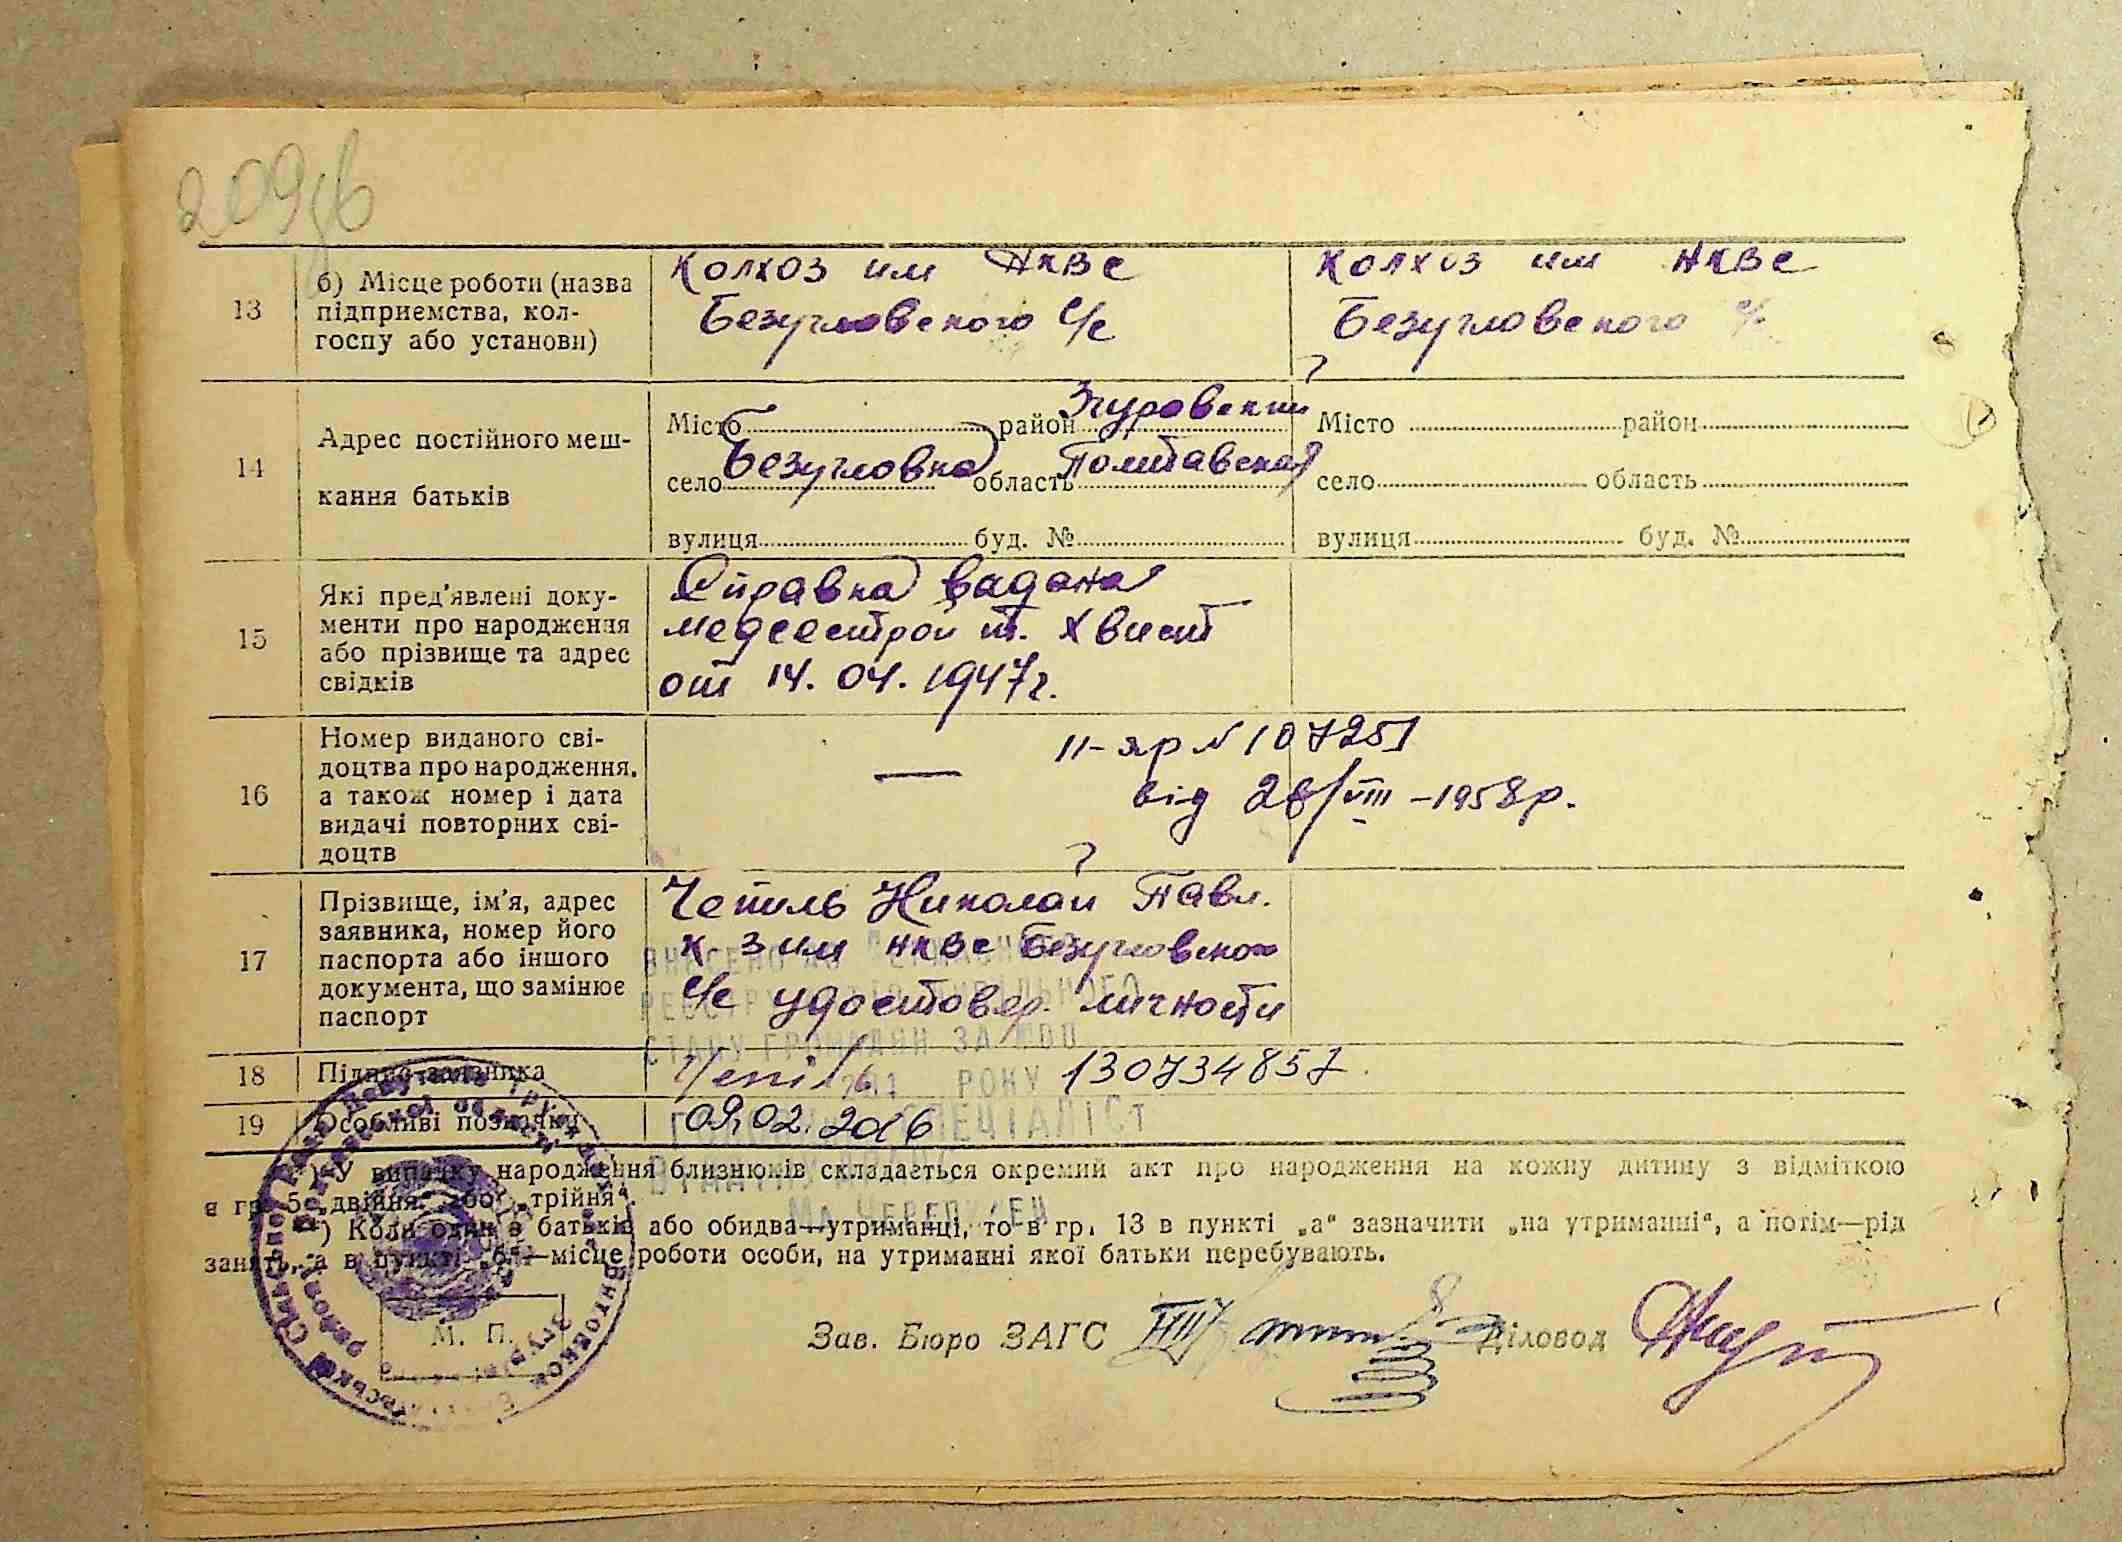 209
13
б) Місце роботи (назва
підприємства, кол-
госпу або установи)
Колхоз им НКВС
Безугловского с/с
Колхоз им НКВС
Безугловского с/с
14
Адрес постійного меш-
кання батьків
Місто район Згуровский
село Безугловка область Полтавская
вулиця буд. №
Місто район
село область
вулиця буд. №
15
Які пред'явлені доку-
менти про народження
або прізвище та адрес
свідків
Справка вадана
медсестрой т. Хвист
от 14.04.1947г.
16
Номер виданого сві-
доцтва про народження,
а також номер і дата
видачі повторних сві-
доцтв
—
II-яр № 107251
від 28/VIII-1958р.
17
Прізвище, ім'я, адрес
заявника, номер його
паспорта або іншого
документа, що замінює
паспорт
Чепиль Николай Павл.
к з им НКВС Безугловского
с/с удостовер. личности
18
Підпис заявника
Чепіль
130734857
19
Особливі позначки
09.02.2016
ВНЕСЕНО ДО ДЕРЖАВНОГО
РЕЄСТРУ АКТІВ ЦИВІЛЬНОГО
СТАНУ ГРОМАДЯН ЗА
РОКУ
СПЕЦІАЛІСТ
*) У випадку народження близнюків складається окремий акт про народження на кожну дитину з відміткою
в гр. 5 „двійня" або „трійня".
**) Коли один з батьків або обидва—утриманці, то в гр. 13 в пункті „а" зазначити „на утриманні", а потім—рід
занять, а в пункті „б"—місце роботи особи, на утриманні якої батьки перебувають.
М. П.
Зав. Бюро ЗАГС
Діловод